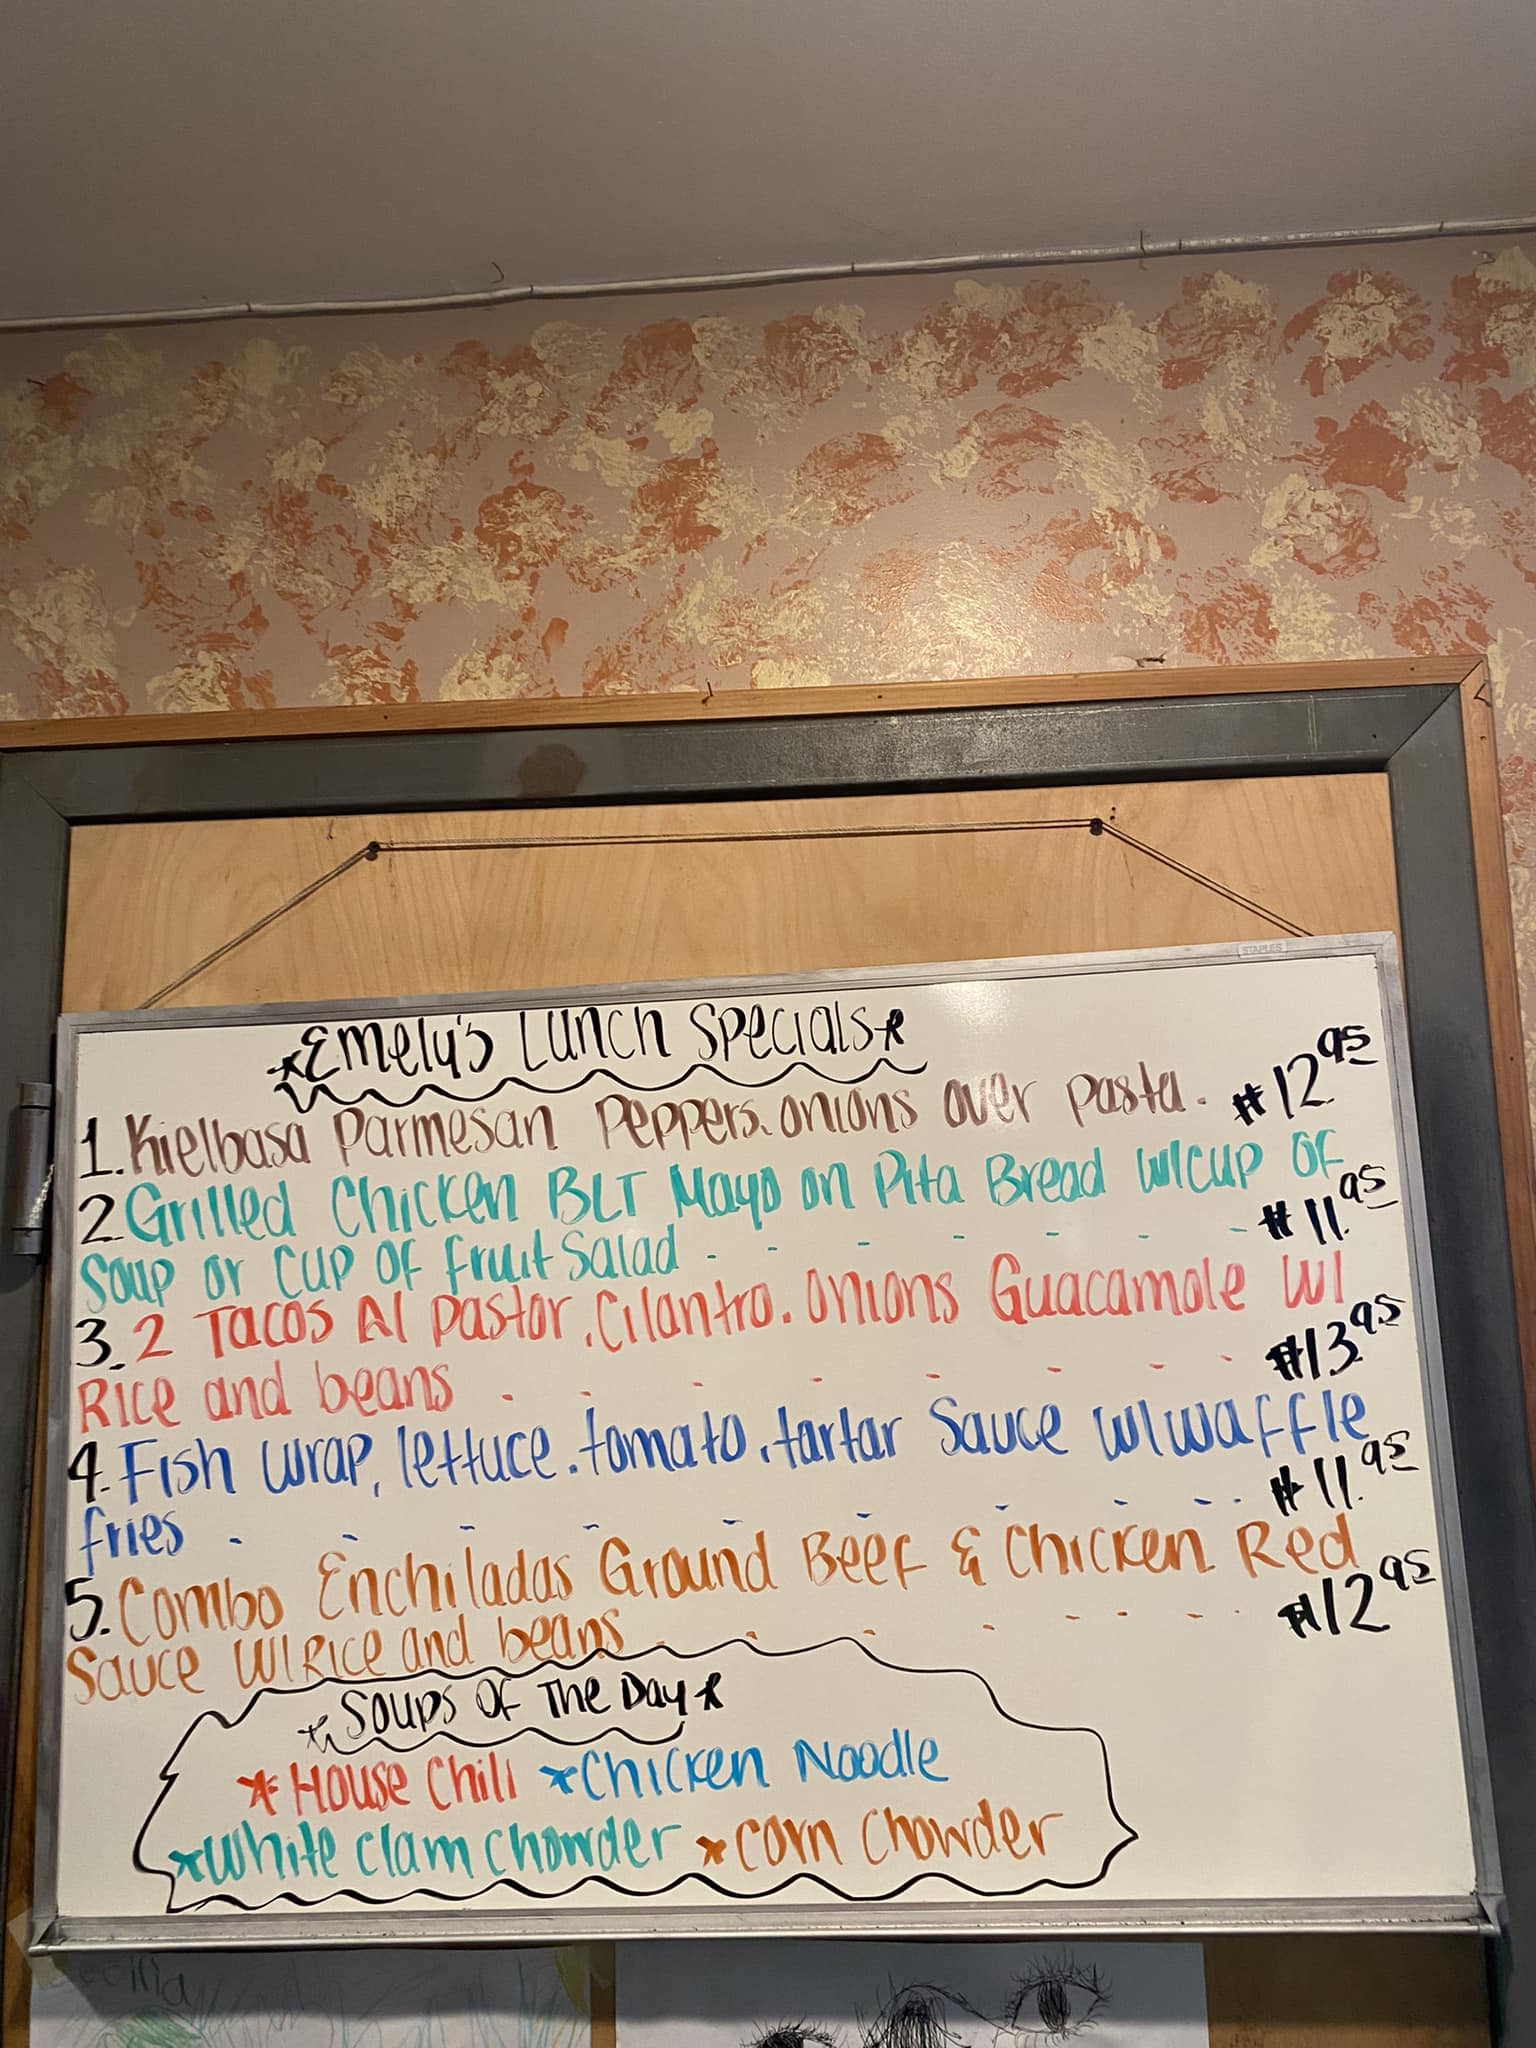 STAPLES
Emely's Lunch Specials
1. Kielbasa Parmesan Peppers, onions over pasta. $12.95
2. Grilled Chicken BLT Mayo on Pita Bread w/cup of
Soup or cup of fruit Salad - - - - - - $11.95
3. 2 Tacos Al pastor, Cilantro, onions Guacamole w/
Rice and beans - - - - - - - - $13.95
4. Fish wrap, lettuce, tomato, tartar Sauce w/waffle
fries - - - - - - - - - - $11.95
5. Combo Enchiladas Ground Beef & Chicken Red
Sauce w/Rice and beans - - - - - - - $12.95
Soups Of The Day
House Chili Chicken Noodle
White clam chowder corn chowder